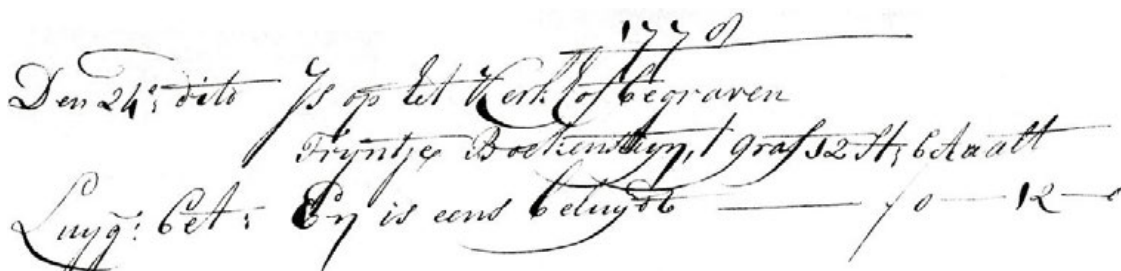 1778
Den 24e: dito Js op het Kerkhof begraven
Tryntje Boekenstyn, 't graf 12 St: betaalt
Luyg: bet: En is eens beluydt — f 0 — 12 —